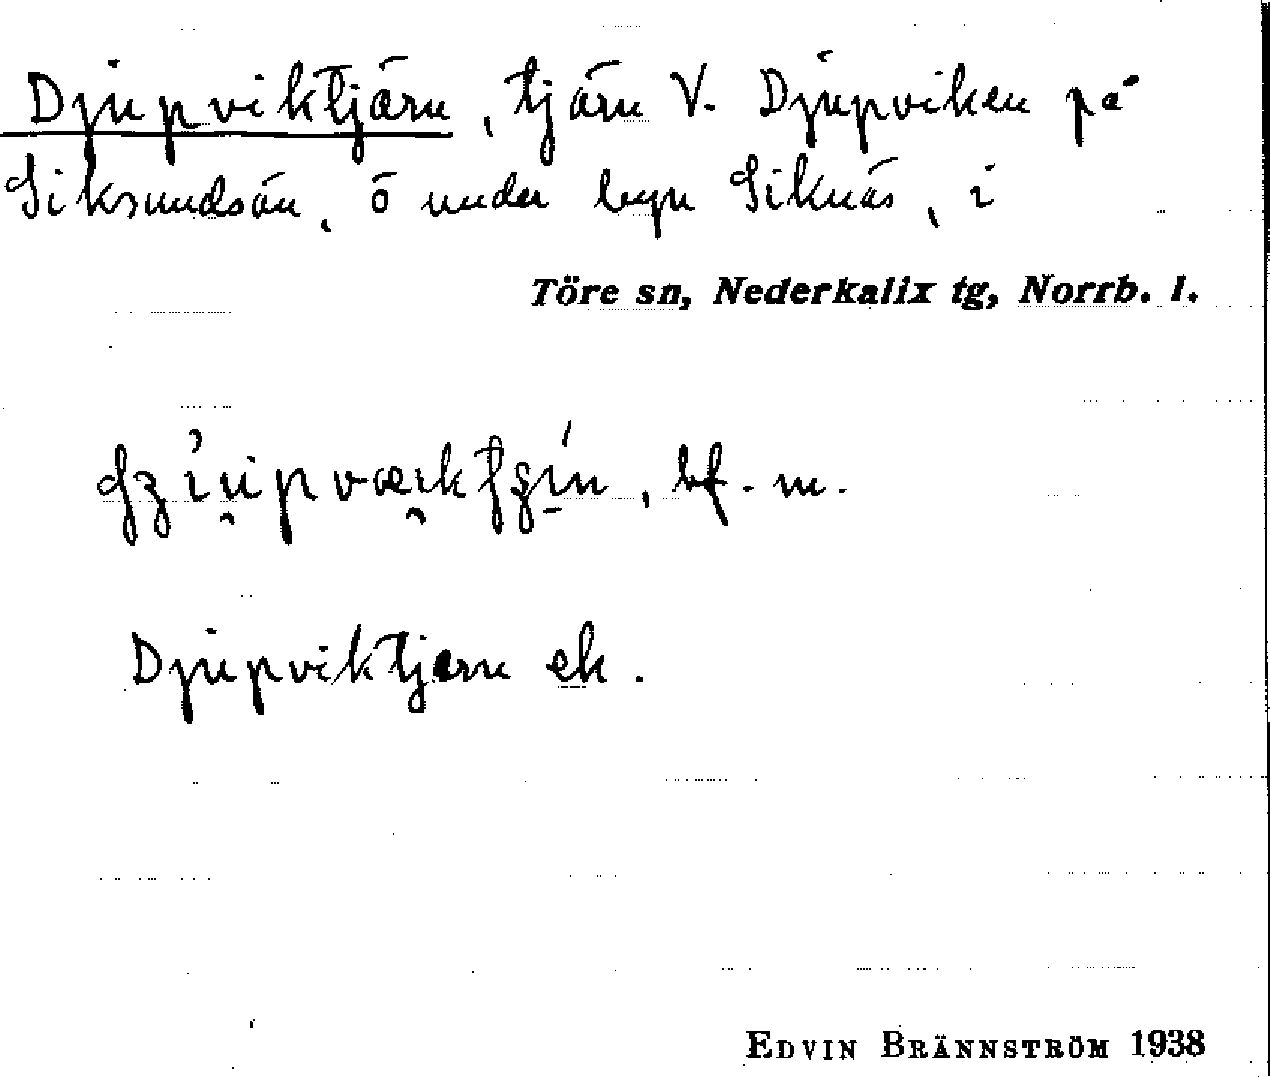 Djupviktjärn, tjärn V. Djupviken på
Siksundsön, ö under byn Siknäs, i
Töre sn, Nederkalix tg, Norrb. l.
bf. m.
Djupviktjärn ek.
EDVIN BRÄNNSTRÖM 1938